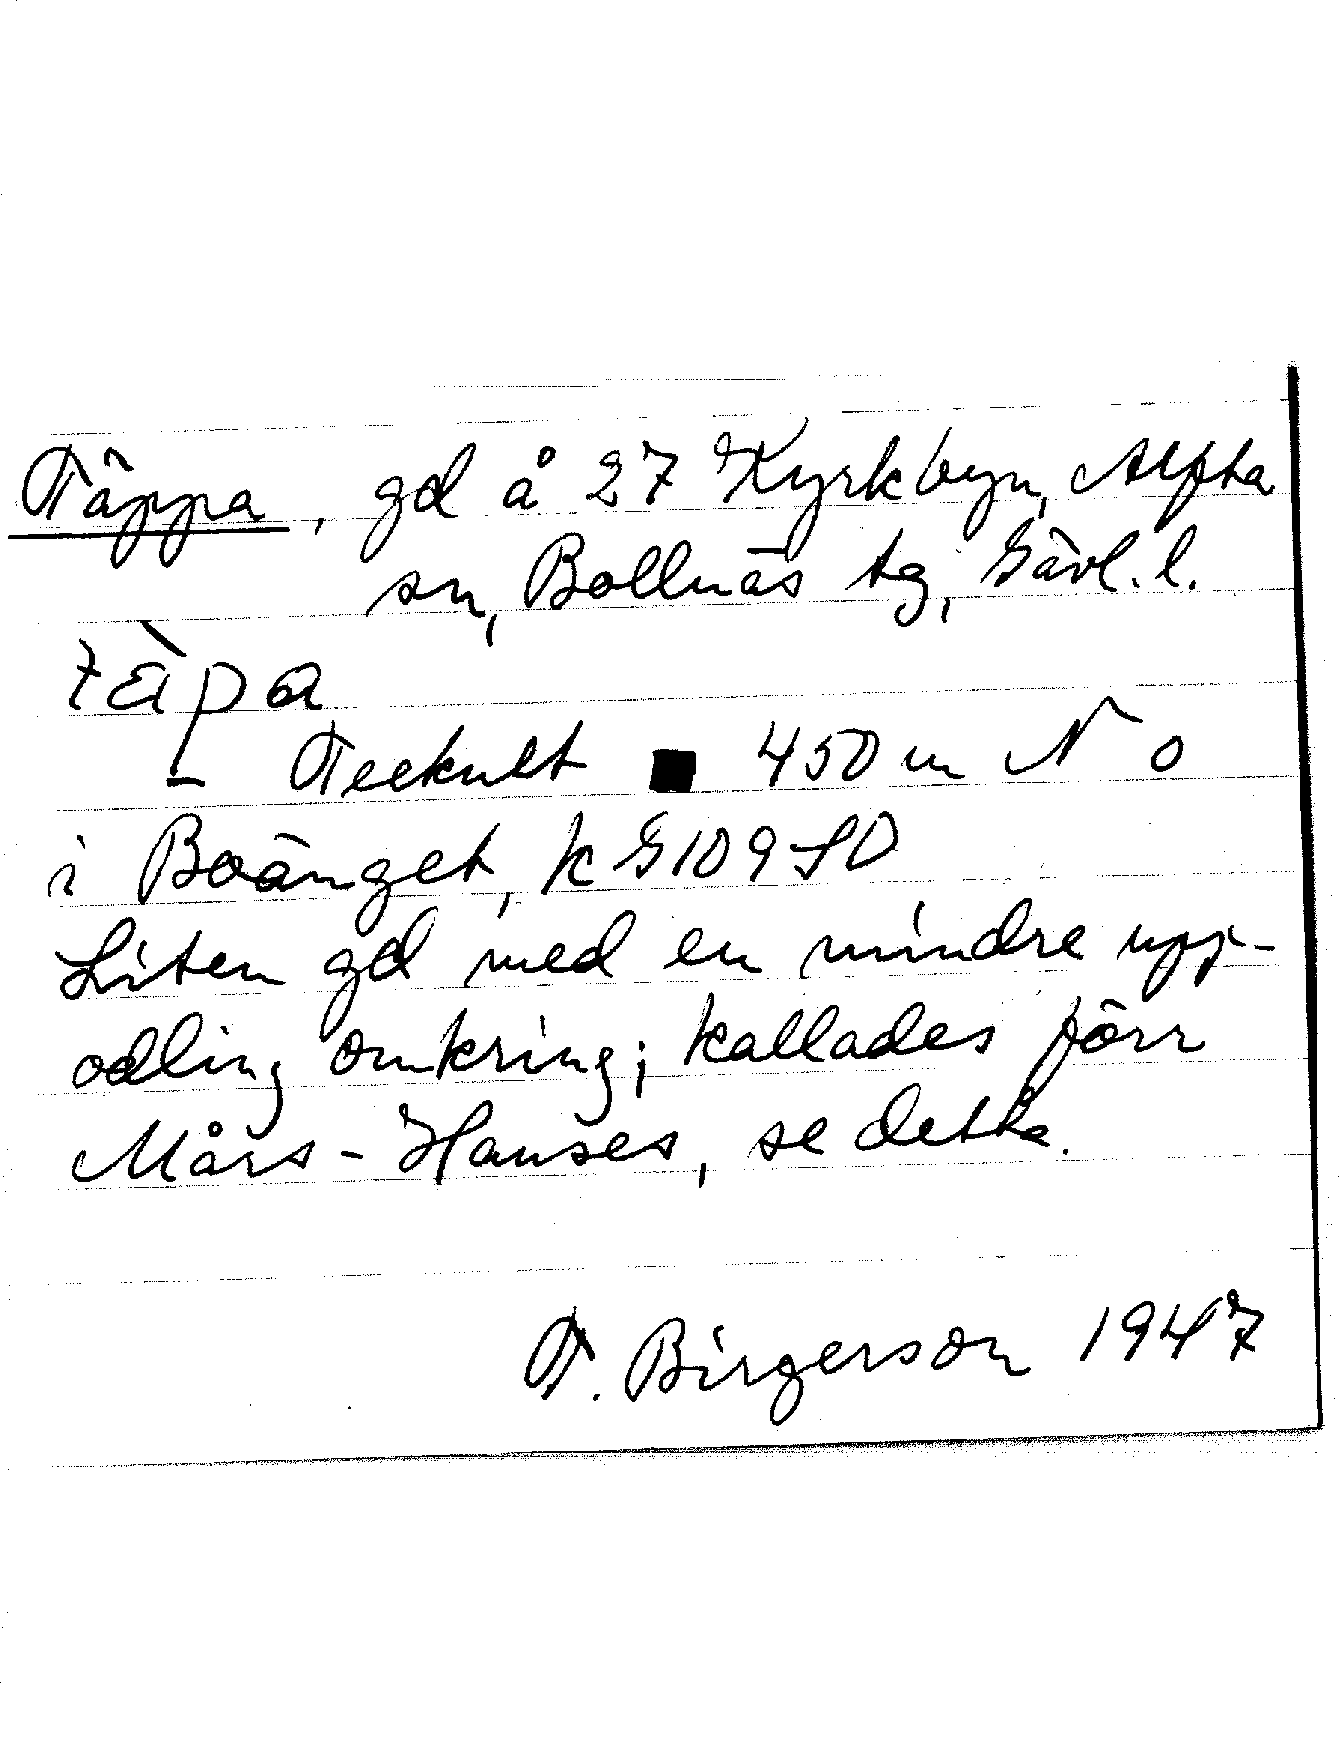 Täppa, gd å 27 Kyrkbyn, Alfta
sn, Bollnäs tg, Gävl. l.
tàpa
- Tecknet ■ 450 m N o
i Boänget, k G 109 SO
Liten gd med en mindre upp-
odling omkring; kallades förr
Mårs-Hanses, se detta.
T. Birgerson 1947